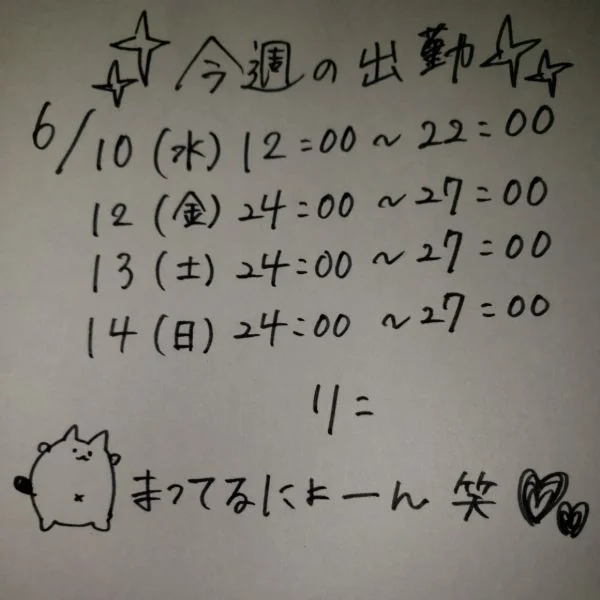 今週の出勤
6/10(水)12:00~22:00
12(金)24:00~27:00
13(土)24:00~27:00
14(日)24:00~27:00
リニ
まってるによーん 笑